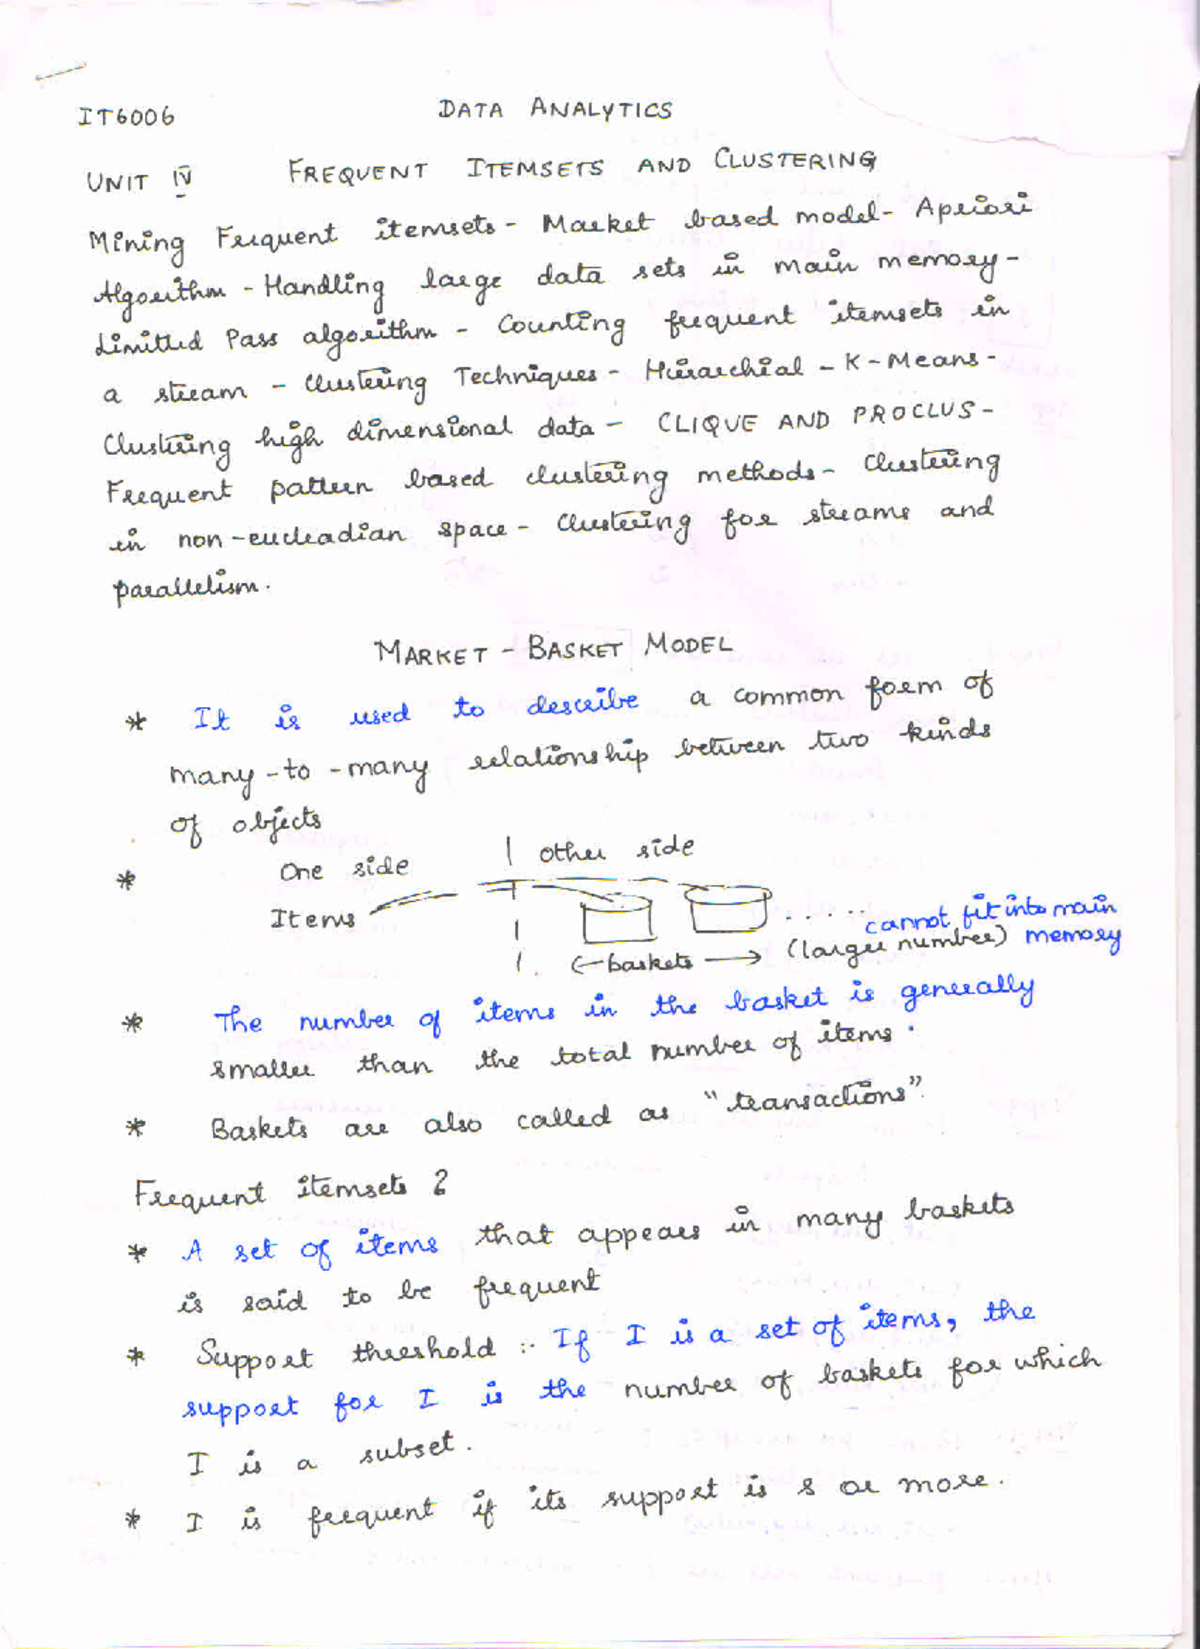 IT6006 DATA ANALYTICS
UNIT IV FREQUENT ITEMSETS AND CLUSTERING
Mining Frequent itemsets - Market based model - Apriori
Algorithm - Handling large data sets in main memory -
Limitted Pass algorithm - Counting frequent itemsets in
a stream - Clustering Techniques - Hierarchial - K-Means -
Clustering high dimensional data - CLIQUE AND PROCLUS -
Frequent pattern based clustering methods - Clustering
in non-eucleadian space - Clustering for streams and
parallelism.
MARKET - BASKET MODEL
* It is used to describe a common form of
many-to-many relationship between two kinds
of objects
* One side | other side
Items
..... cannot fit into main
<- baskets -> (larger number) memory
* The number of items in the basket is generally
smaller than the total number of items.
* Baskets are also called as "transactions".
Frequent itemsets ?
* A set of items that appears in many baskets
is said to be frequent
* Support threshold :- If I is a set of items, the
support for I is the number of baskets for which
I is a subset.
* I is frequent if its support is s or more.